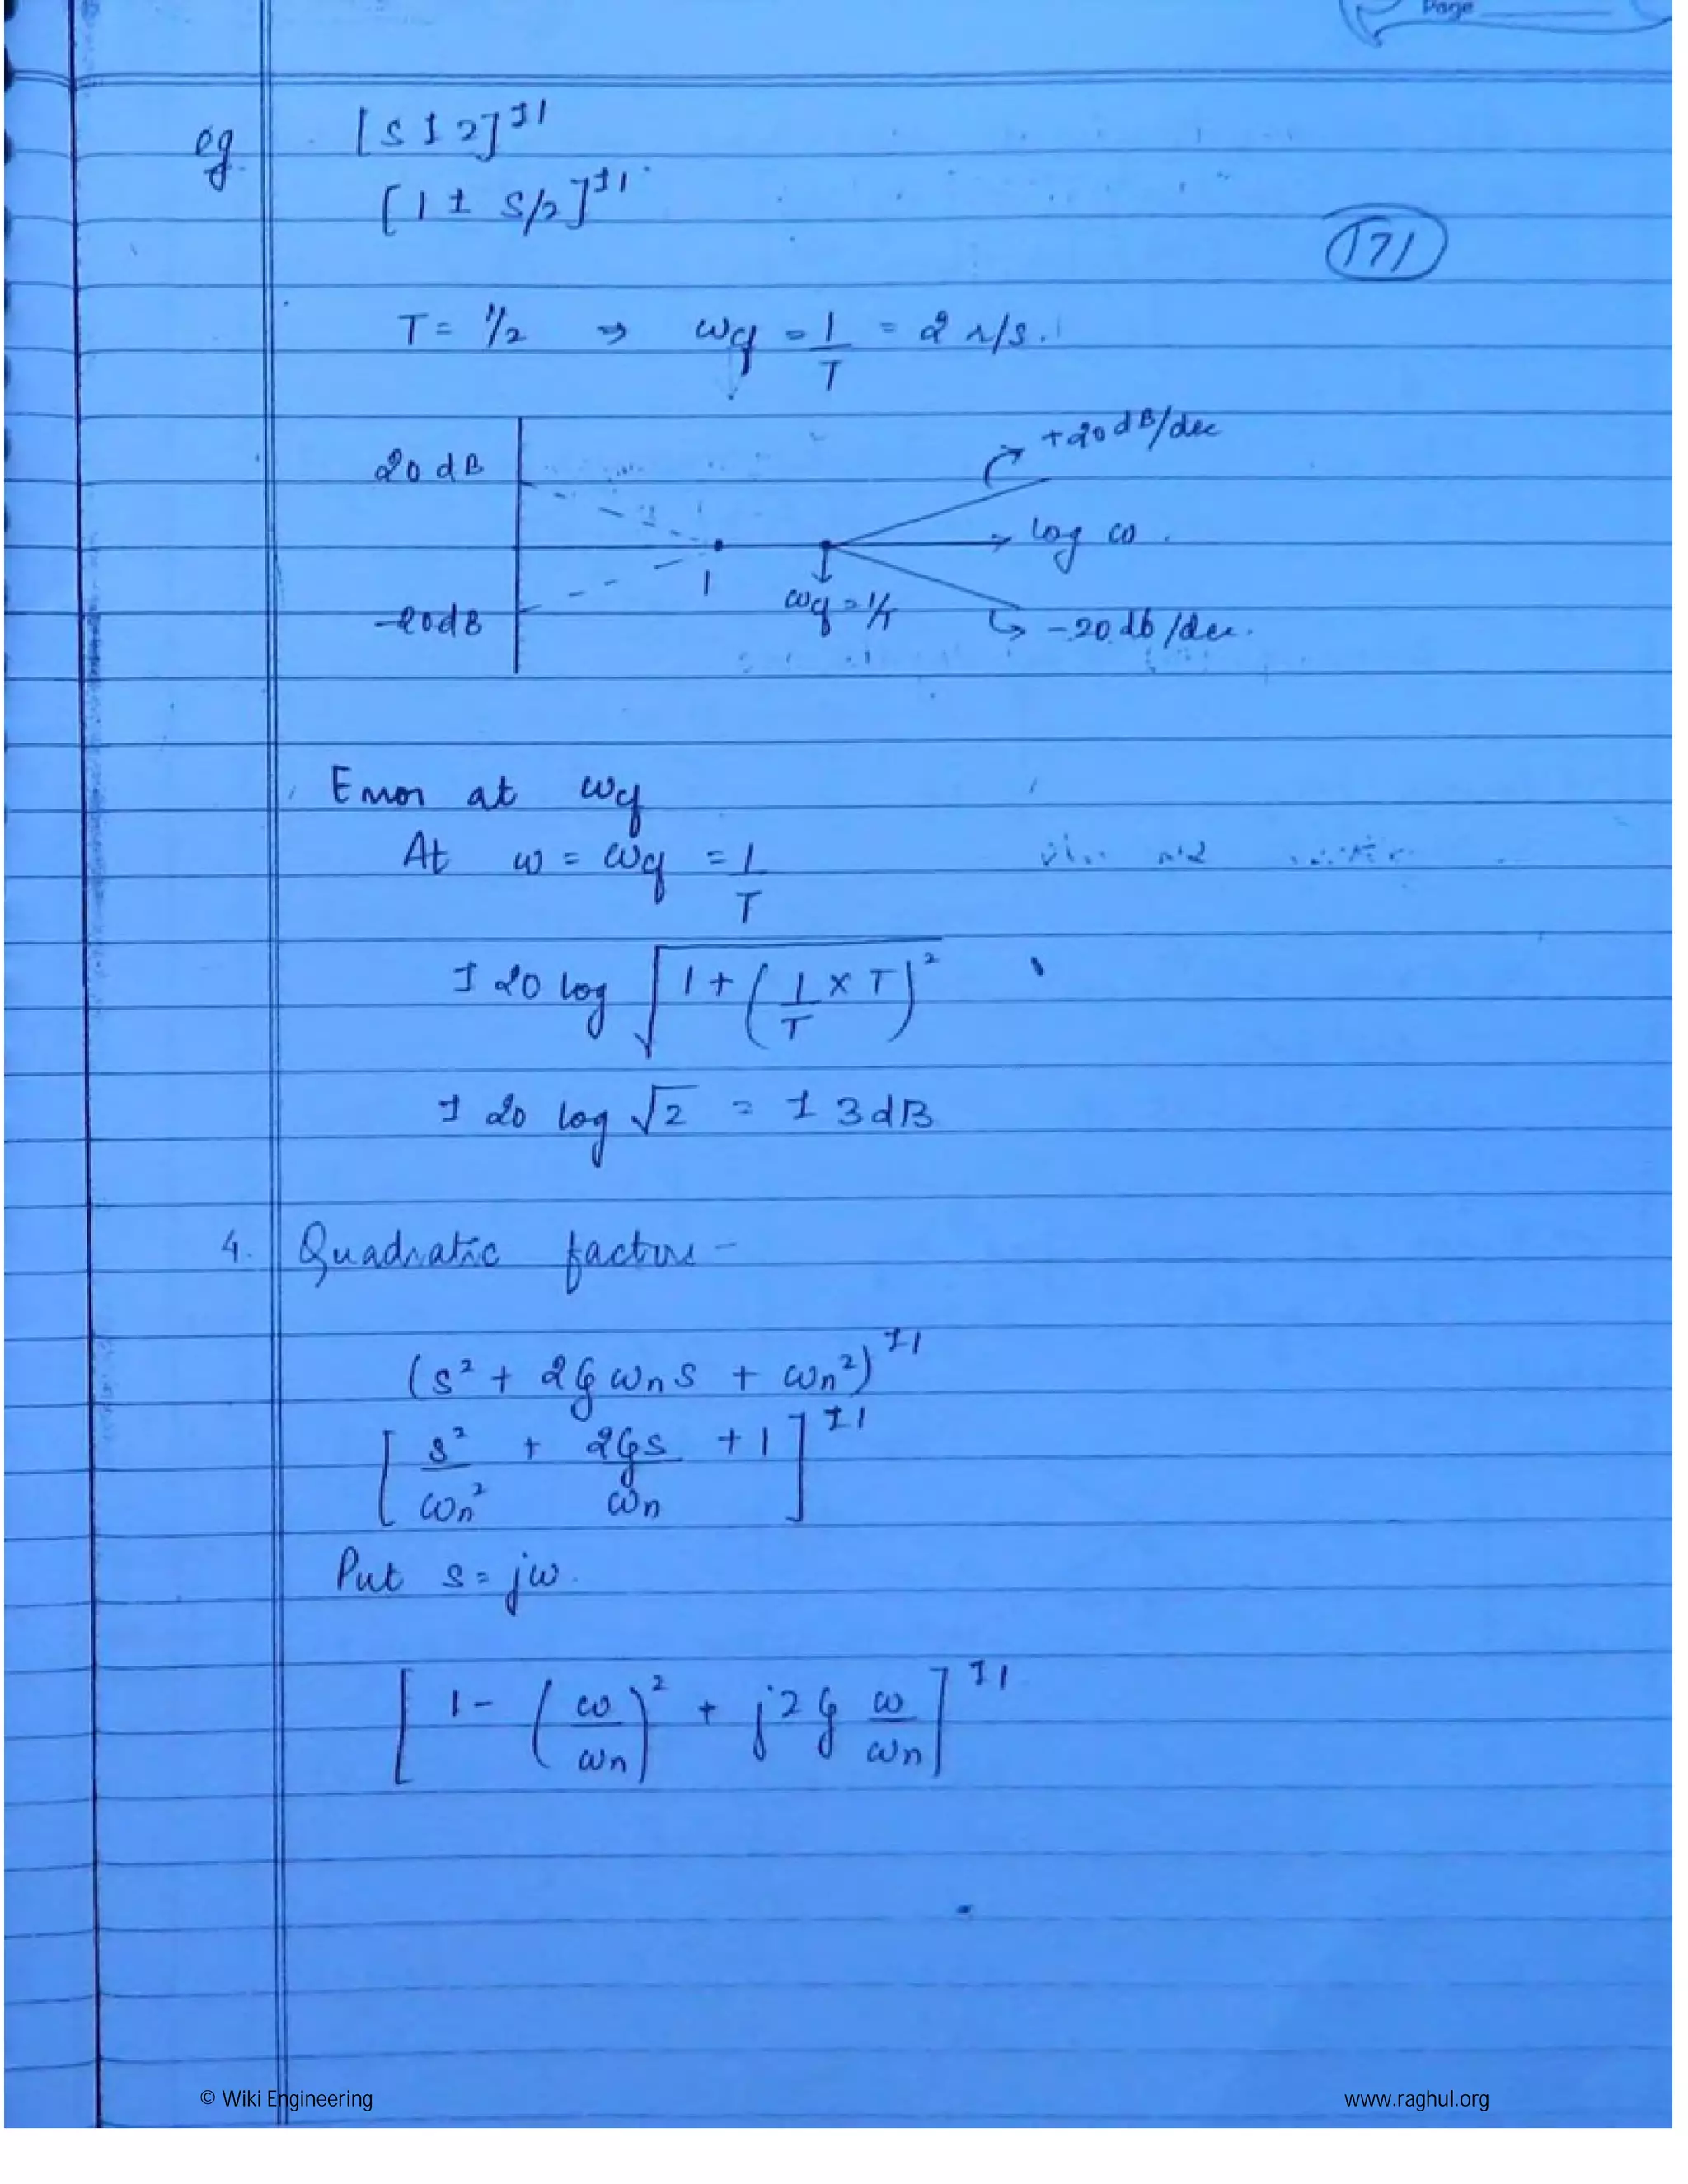 Page
eg [S ± 2]^±1
[1 ± S/2]^±1
(171)
T = 1/2 ⇒ ωcf = 1/T = 2 r/s.
+20 dB/dec
20 dB
log ω
1
ωcf = 1/T
-20dB
-20 db/dec.
Error at ωcf
At ω = ωcf = 1/T
± 20 log √(1 + (1/T × T)²)
± 20 log √2 = ± 3dB
4. Quadratic factors -
(s² + 2ζωns + ωn²)^±1
[s²/ωn² + 2ζs/ωn + 1]^±1
Put s = jω
[1 - (ω/ωn)² + j2ζ ω/ωn]^±1
© Wiki Engineering www.raghul.org